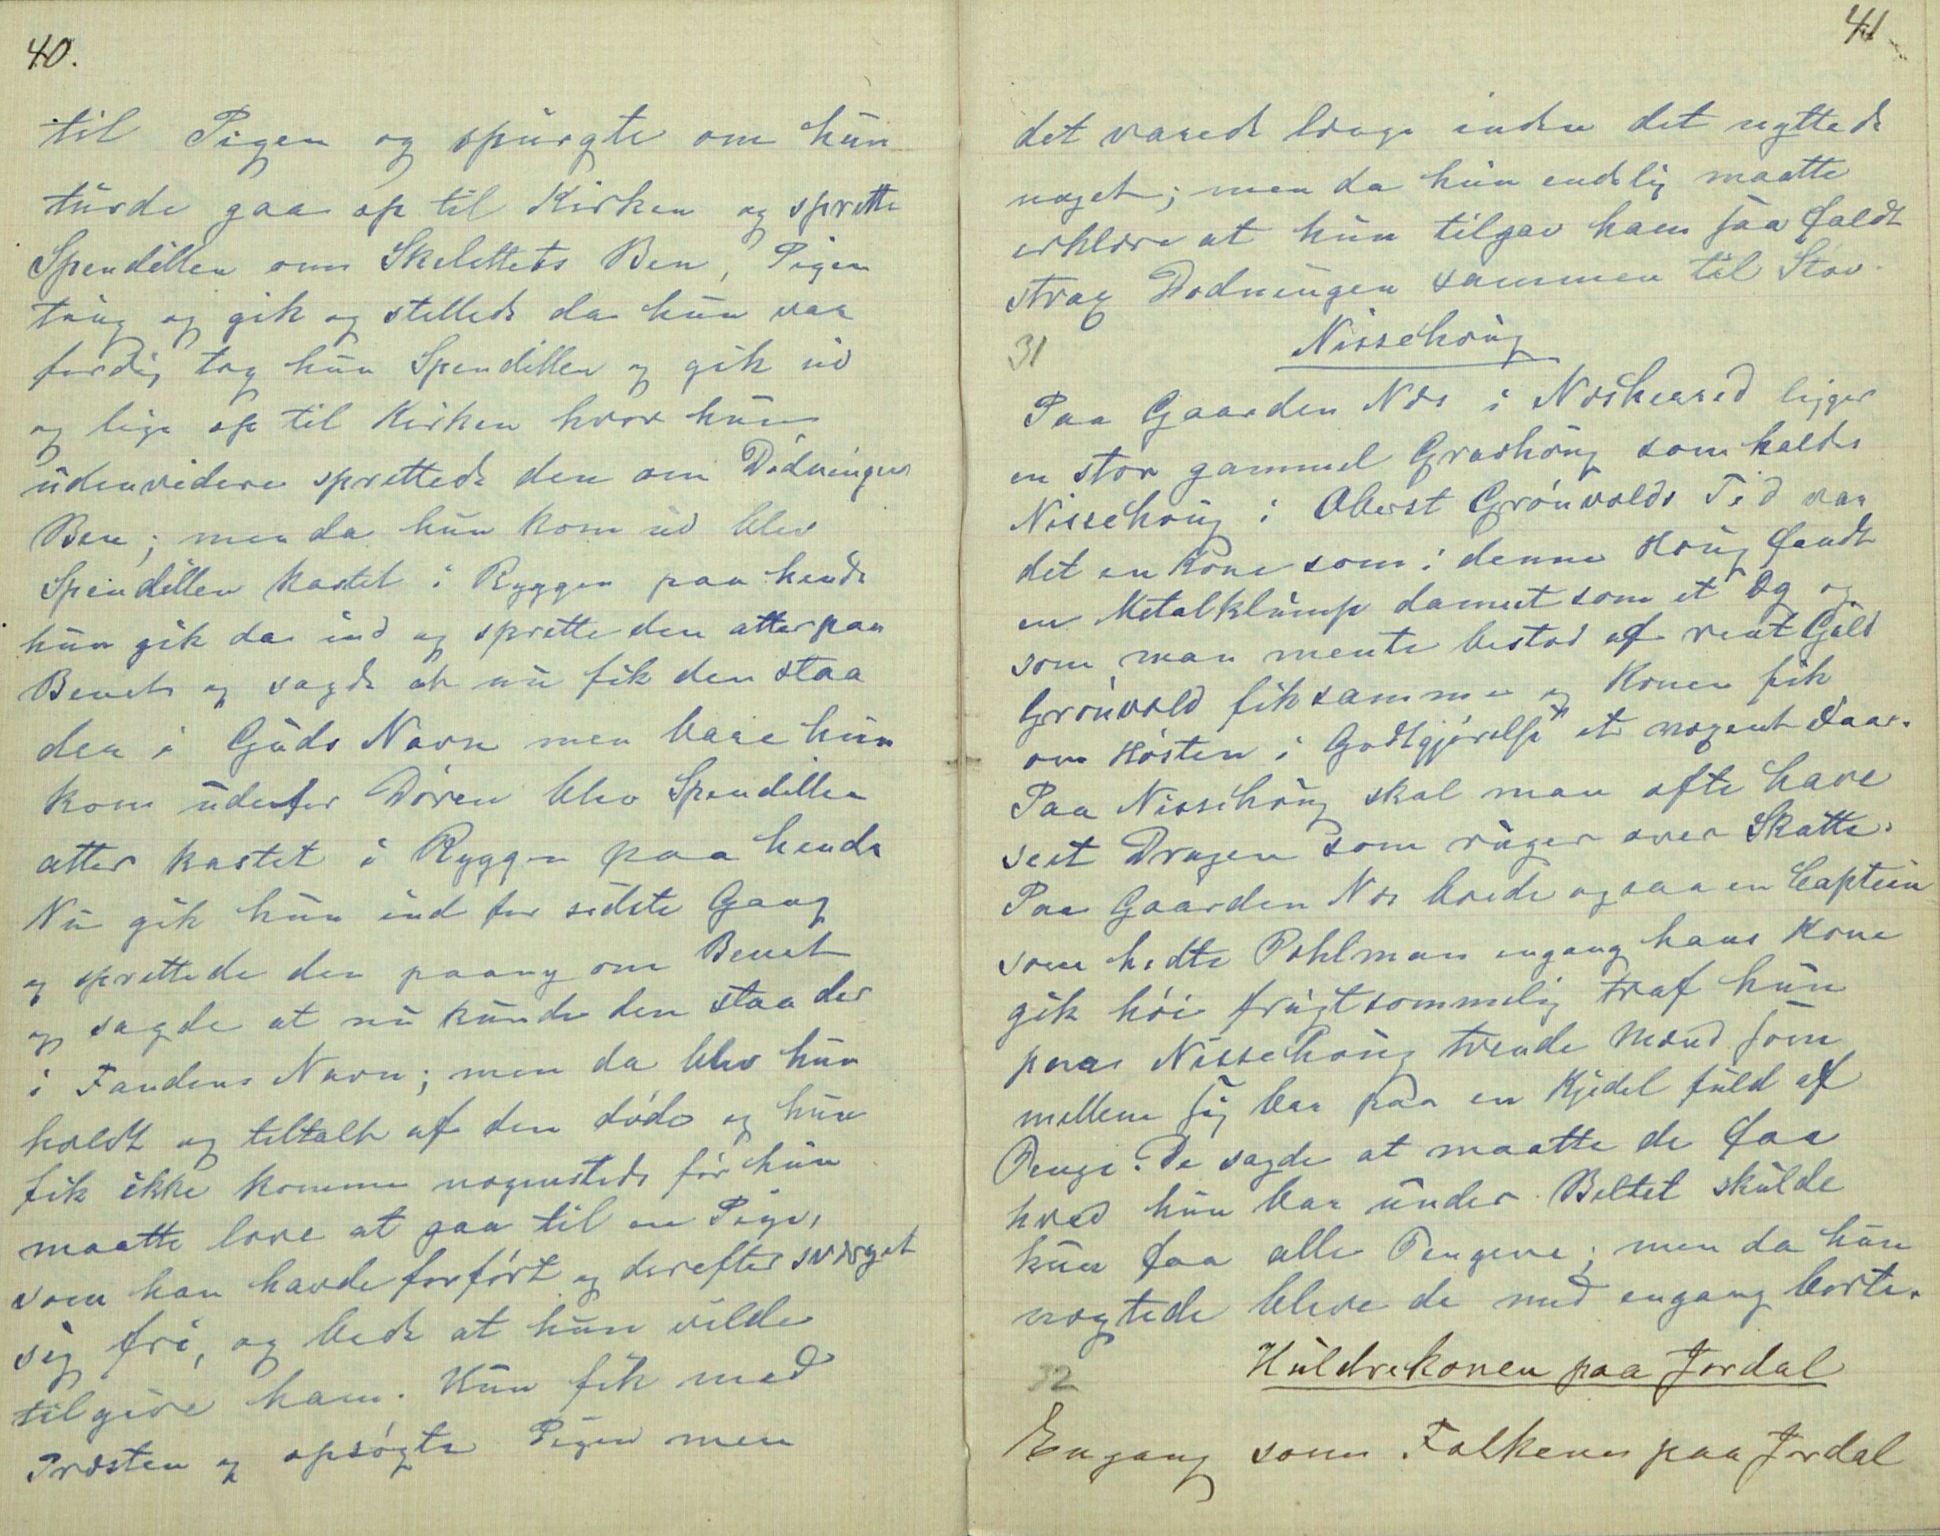 40.
til Pigen og spurgte om hun
turde gaa op til Kirken og sprette
Spendillen om Skelettets Ben, Pigen
taug og gik og stellede da hun var
færdig tog hun Spendillen og gik ud
og lige op til Kirken hvor hun
udenvidere sprettede den om Dödningens
Ben; men da hun kom ud blev
Spendillen kastet i Ryggen paa hende
hun gik da ind og sprette den atter paa
Benet og sagde at nu fik den staa
der i Guds Navn men bare hun
kom udenfor Dören blev Spendillen
atter kastet i Ryggen paa hende
Nu gik hun ind for sidste Gang
og sprettede den paany om Benet
og sagde at nu kunde den staa der
i Fandens Navn; men da blev hun
holdt og tiltalt af den döde og hun
fik ikke komme nogensteds för hun
maatte love at gaa til en Pige,
som han havde forfört og derefter sværget
sig fri, og bede at hun vilde
tilgive ham. Hun fik med
Præsten og opsögte Pigen men
41
det varede længe inden det nyttede
noget; men da hun endelig maatte
erklære at hun tilgav ham saa faldt
strax Dødningen sammen til Støv.
31
Nissehoug
Paa Gaarden Næs i Næsherred ligger
en stor gammel Græshoug som kaldes
Nissehoug i Oberst Grönvolds Tid var
det en Kone som i denne Houg fandt
en Metalklump dannet som et Æg og
som man mente bestod af rent Guld
Grönvold fik samme og Konen fik
om Hösten i Godtgjörelse et magert Faar.
Paa Nissehoug skal man ofte have
seet Dragen som ruger over Skatte.
Paa Gaarden Næs boede ogsaa en Captein
som hedte Pohlman engang hans Kone
gik höi frugtsommelig traf hun
paa Nissehoug trende Mænd som
mellem sig bar paa en Kjedel fuld af
Penge. De sagde at maatte de faa
hvad hun bar under Beltet skulde
hun faa alle Pengene; men da hun
nægtede bleve de med engang borte.
32
Huldrekonen paa Jordal
Engang som Folkene paa Jordal